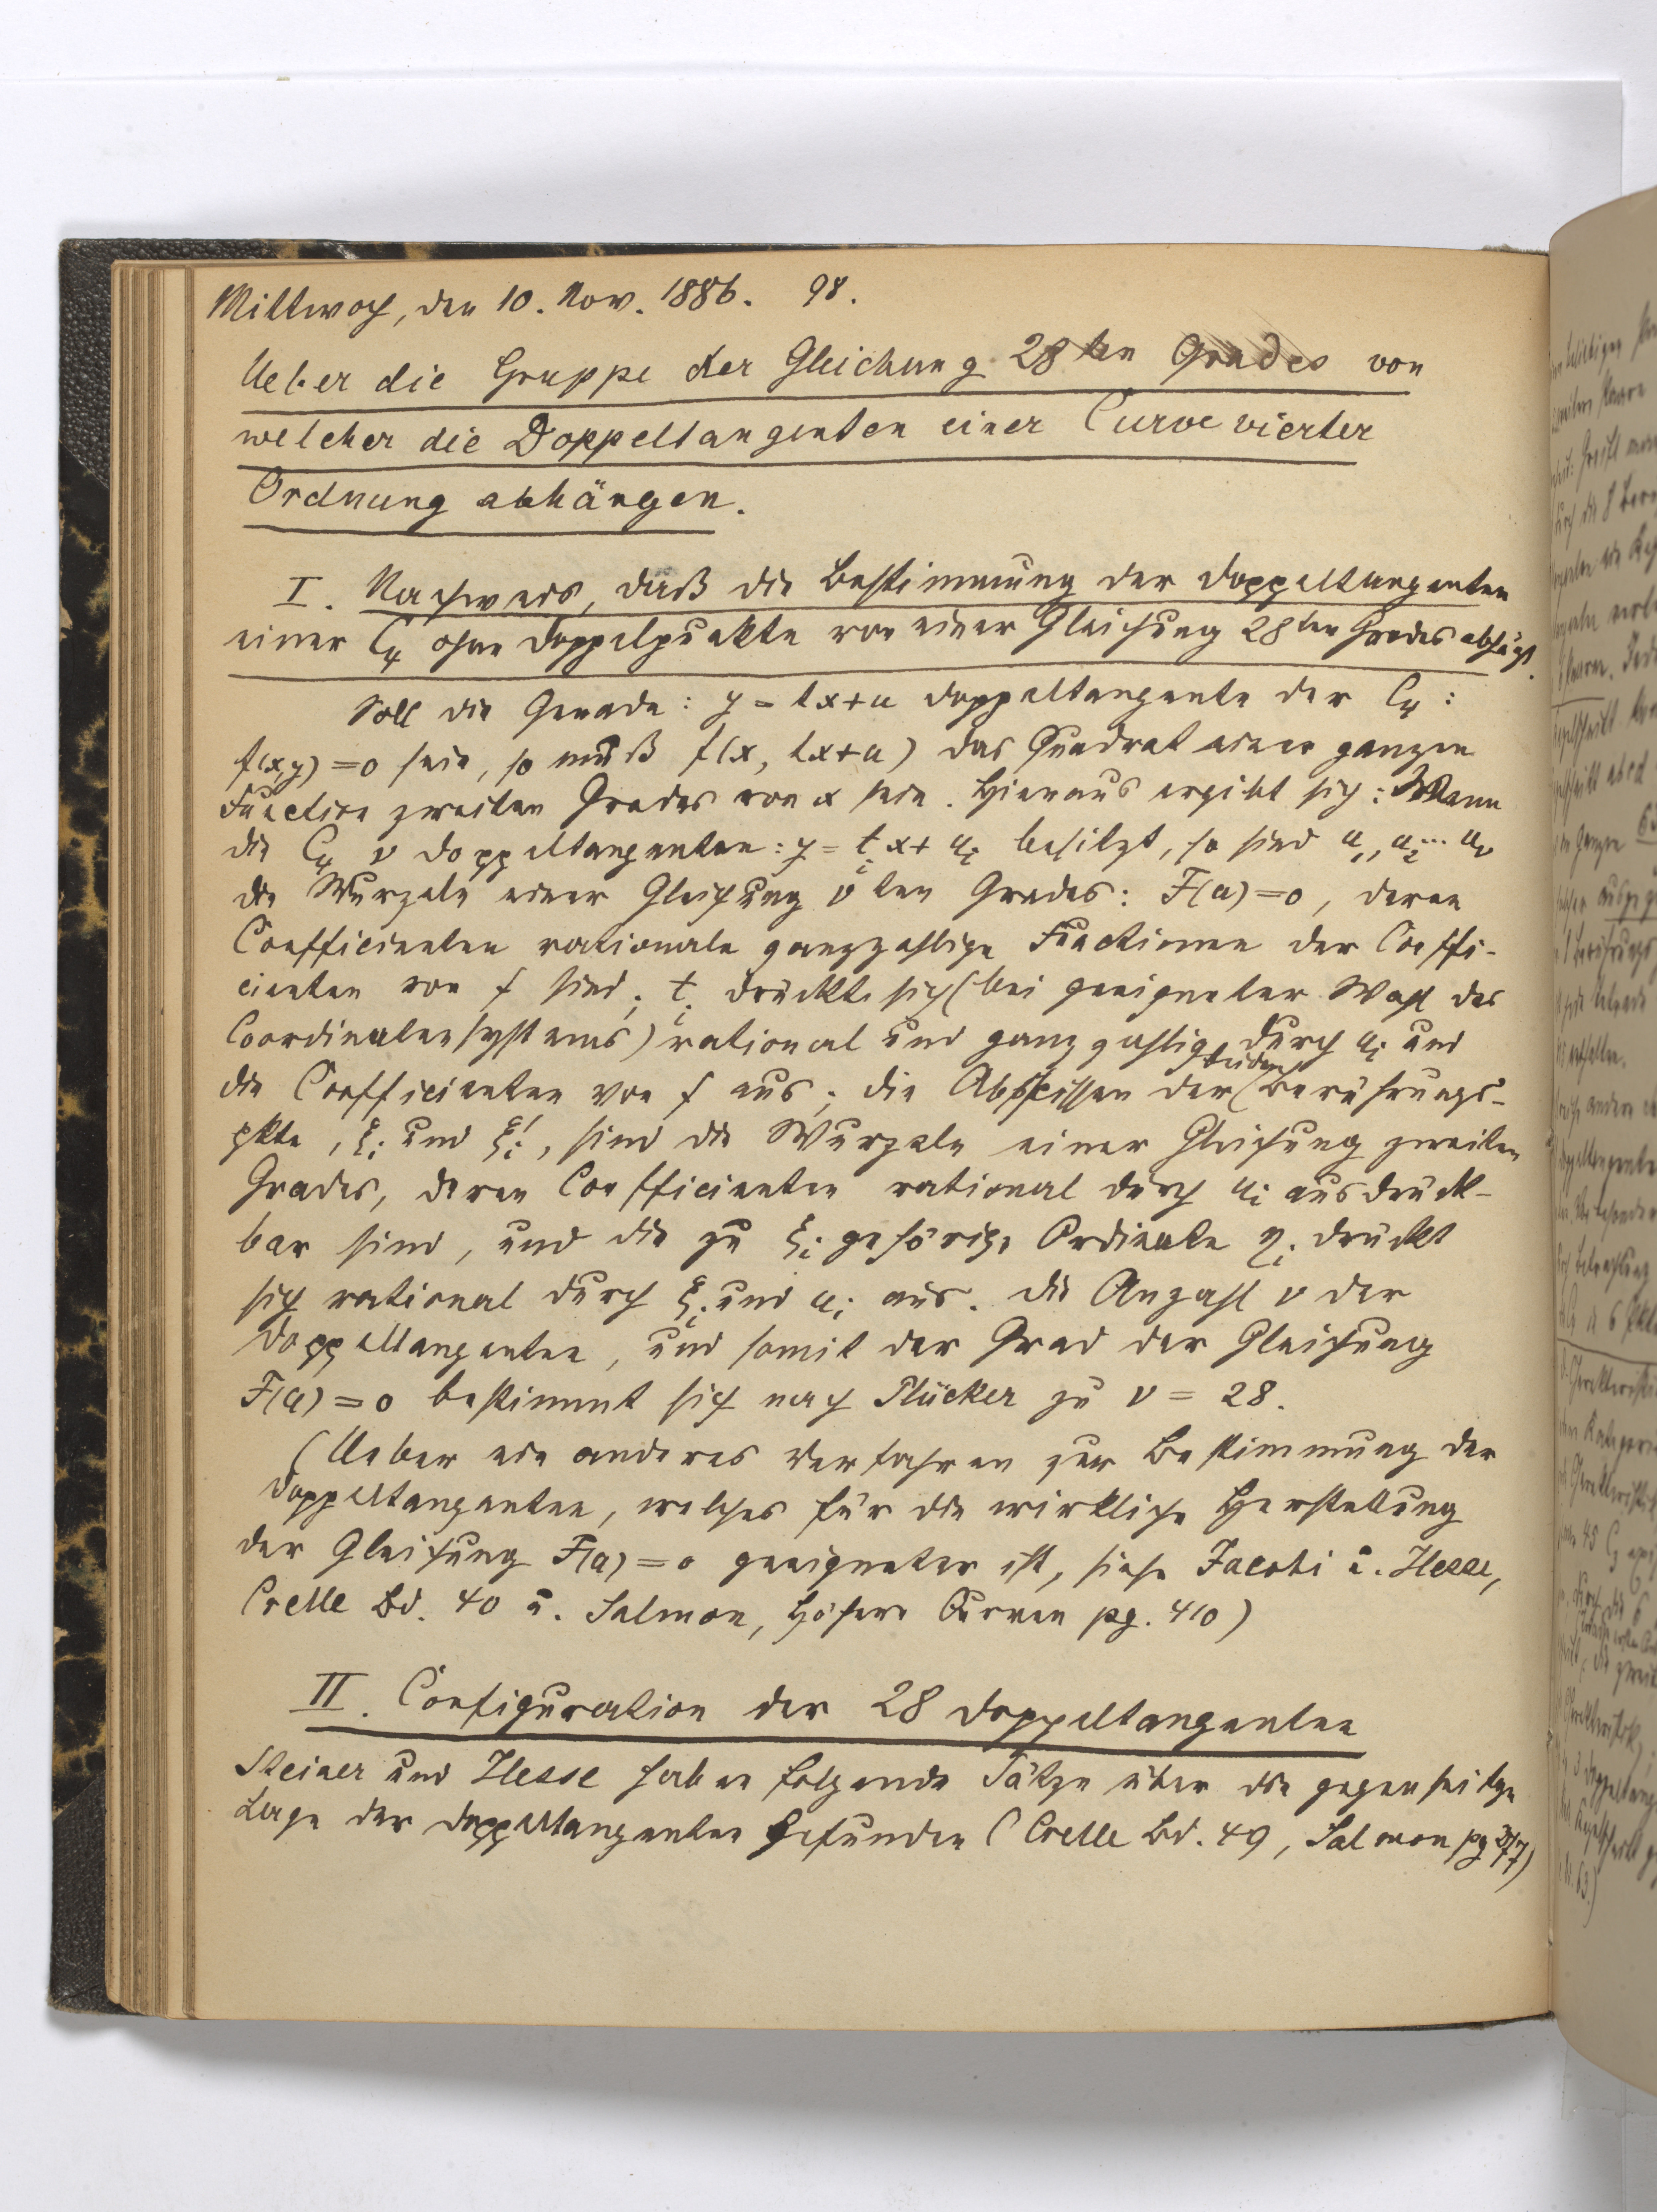 Mittwoch, den 10. Nov. 1886. 98.
Ueber die Gruppe der Gleichung 28ten Grades von
welcher die Doppeltangenten einer Curve vierter
Ordnung abhängen.
I. Nachweis, daß die Bestimmung der Doppeltangenten
einer C₄ ohne Doppelpunkte von einer Gleichung 28ten Grades abhängt.
Soll die Gerade: y = tx+u Doppeltangente der C₄:
f(x,y) = 0 sein, so muß f(x, tx+u) das Quadrat einer ganzen
Function zweiten Grades von x sein. Hieraus ergibt sich: Wenn
die C₄ ν Doppeltangenten: y = tᵢx + uᵢ besitzt, so sind u₁, u₂ ... uν
die Wurzeln einer Gleichung νten Grades: F(u) = 0, deren
Coefficienten rationale ganzzahlige Functionen der Coeffi-
cienten von f sind; tᵢ drückt sich (bei geeigneter Wahl des
Coordinatensystems) rational und ganzzahlig durch uᵢ und
die Coefficienten von f aus; die Abscissen der beiden Berührungs-
pkte, ξᵢ und ξᵢ', sind die Wurzeln einer Gleichung zweiten
Grades, deren Coefficienten rational durch uᵢ ausdrück-
bar sind, und die zu ξᵢ gehörige Ordinate ηᵢ drückt
sich rational durch ξᵢ und uᵢ aus. Die Anzahl ν der
Doppeltangenten, und somit der Grad der Gleichung
F(u) = 0 bestimmt sich nach Plücker zu ν = 28.
(Ueber ein anderes Verfahren zur Bestimmung der
Doppeltangenten, welches für die wirkliche Herstellung
der Gleichung F(u) = 0 geeigneter ist, siehe Jacobi u. Hesse,
Crelle Bd. 40 u. Salmon, Höhere Curven pg. 410)
II. Configuration der 28 Doppeltangenten
Steiner und Hesse haben folgende Sätze über die gegenseitige
Lage der Doppeltangenten gefunden (Crelle Bd. 49, Salmon pg